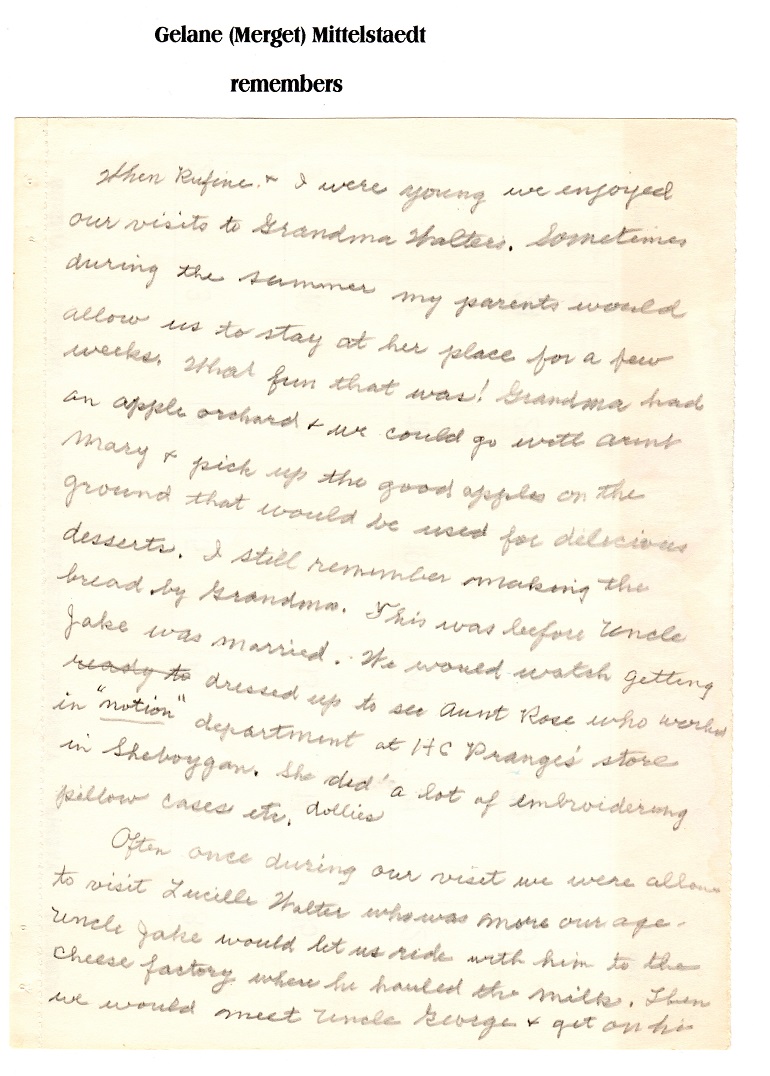 Gelane (Merget) Mittelstaedt
remembers
When Rufine & I were young we enjoyed
our visits to Grandma Walters. Sometimes
during the summer my parents would
allow us to stay at her place for a few
weeks. What fun that was! Grandma had
an apple orchard & we could go with Aunt
Mary & pick up the good apples on the
ground that would be used for delicious
desserts. I still remember making the
bread by Grandma. This was before Uncle
Jake was married. We would watch getting
ready to dressed up to see Aunt Rose who worked
in "notion" department at HC Pranges' store
in Sheboygan. She did a lot of embroidering
pillow cases etc. dollies
Often once during our visit we were allowe
to visit Lucille Walter who was more our age.
Uncle Jake would let us ride with him to the
cheese factory where he hauled the milk. Then
we would meet Uncle George & get on his